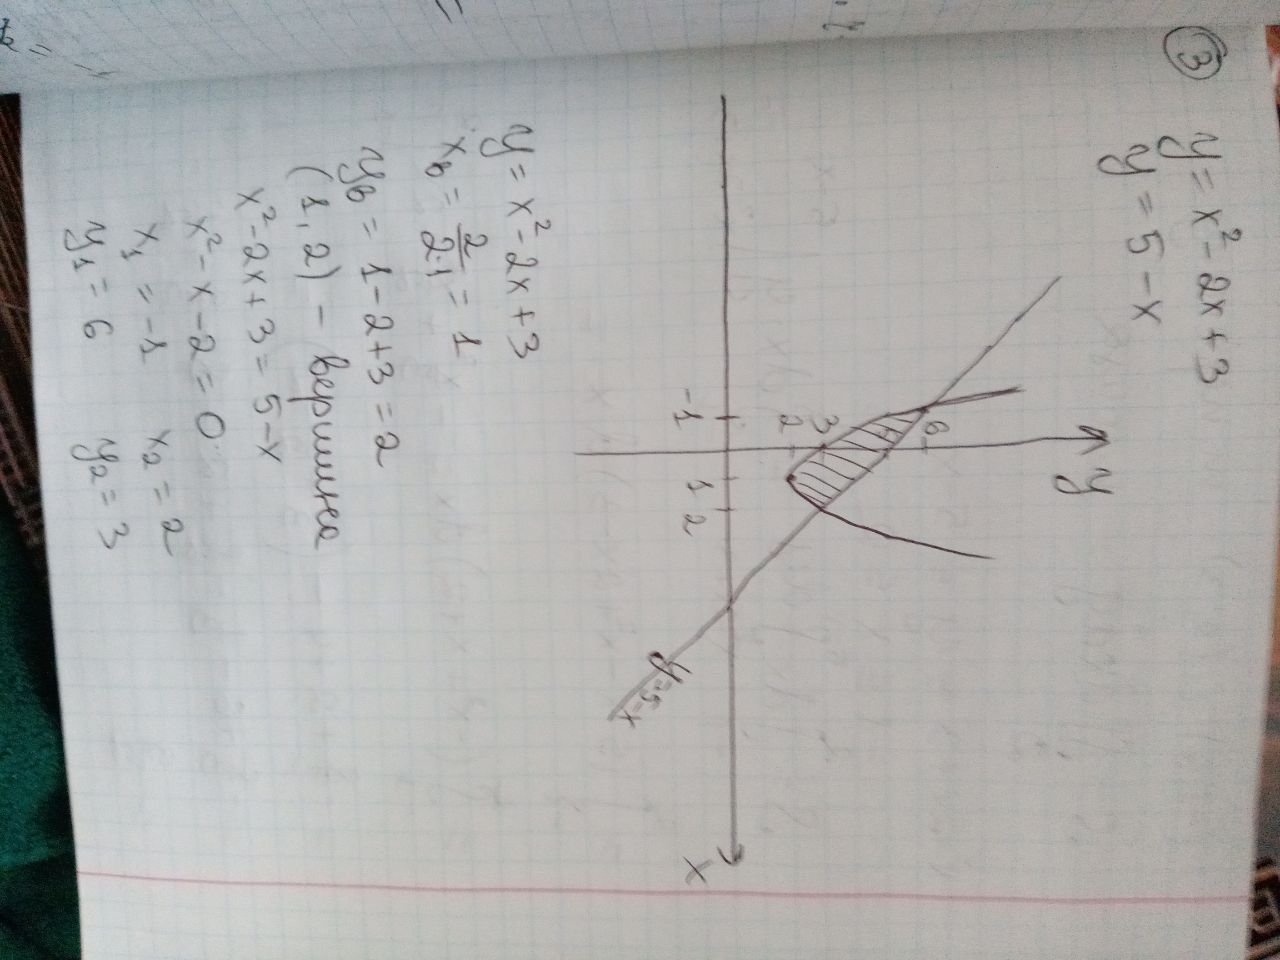 3
y = x² - 2x + 3
y = 5 - x
y
6
3
2
-1 1 2
x
y=5-x
y = x² - 2x + 3
x_в = 2/2·1 = 1
y_в = 1 - 2 + 3 = 2
(1, 2) - вершина
x² - 2x + 3 = 5 - x
x² - x - 2 = 0
x₁ = -1 x₂ = 2
y₁ = 6 y₂ = 3